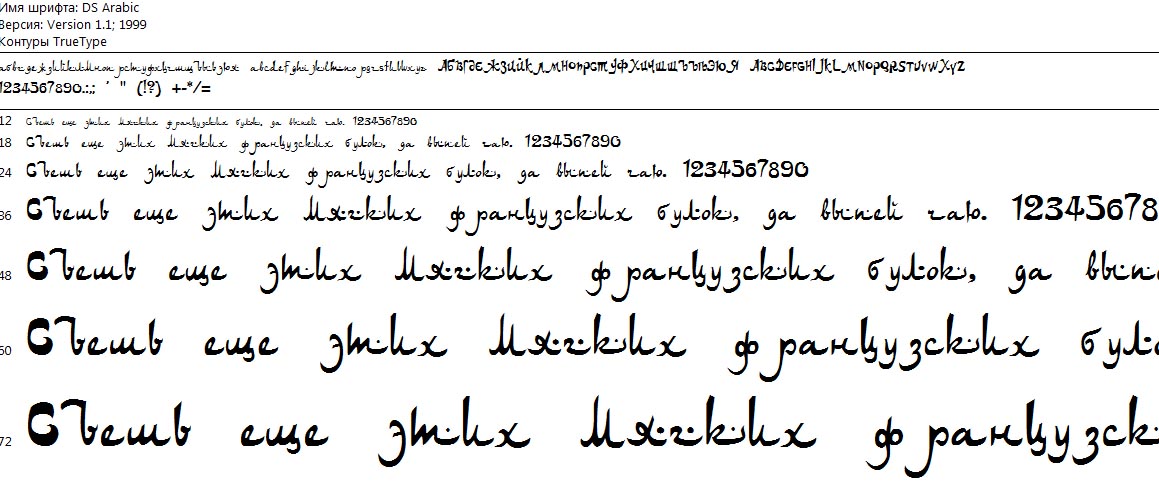 Имя шрифта: DS Arabic
Версия: Version 1.1; 1999
Контуры TrueType
абвгдежзийклмнопрстуфхцчшщъыьэюя abcdefghijklmnopqrstuvwxyz АБВГДЕЖЗИЙКЛМНОПРСТУФХЦЧШЩЪЫЬЭЮЯ ABCDEFGHIJKLMNOPQRSTUVWXYZ
1234567890.:,; ' " (!?) +-*/=
12 Съешь еще этих мягких французских булок, да выпей чаю. 1234567890
18 Съешь еще этих мягких французских булок, да выпей чаю. 1234567890
24 Съешь еще этих мягких французских булок, да выпей чаю. 1234567890
36 Съешь еще этих мягких французских булок, да выпей чаю. 12345678
48 Съешь еще этих мягких французских булок, да выпе
60 Съешь еще этих мягких французских бул
72 Съешь еще этих мягких французск